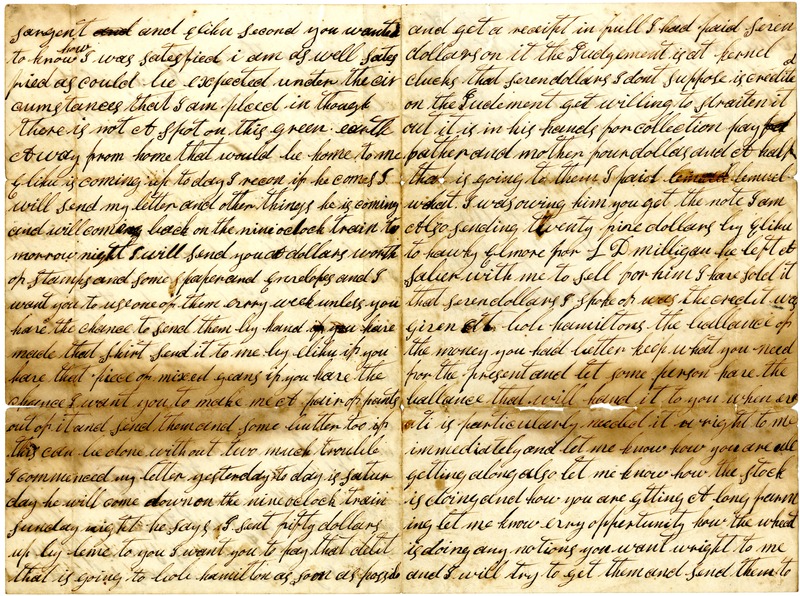 sargent and and Elihu second you wanted
to know how I was satesfied i am as well sates
fied as could be expected under the cir
cumstances that I am placd in though
there is not A spot on this green earth
Away from home that would be home to me
Elihu is coming up to day I recon if he comes I
will send my letter and other things he is coming
and will come back on the nini oclock train to
morrow night I will send you A dollars worth
of stamps and some paper and Envelopes and I
want you to use one of them evry week unless you
have the chance to send them by hand if you have
made that shirt send it to me by Elihu if you
have that piece of mixed jeans if you have the
chance I want you to make me A pair of pants
out of it and send them and some butter too if
this can be done without two much trouble
I commenced my letter yesterday to day is satur
day he will come down on the nine oclock train
sunday night he says I sent fifty dollars
up by leme to you I want you to pay that debt
that is going to hamilton as soon as possib
and get a receipt in full I had paid seven
dollars on it the Judgement is at kernel
clucks that seven dollars I dont suppose is credite d
on the Judement get willing to straiten it
out it is in his hands for collection pay
father and mother four dollas and A half
that is going to them I paid lemuel
what I was owing him you get the note I am
Also sending twenty five dollars by Elihu
to hawky Elmore for L D milligan he left A
with me to sell for him I have sold it
that seven dollars I spoke of was the credit was
given At hamiltons the ballance of
the money you had better keep what you need
for the present and let some person have the
ballance that will hand it to you when ever
it is particularly needed it wright to me
immediately and let me know how you are all
getting along also let me know how the stock
is doing and how you are gtting A long farm
ing let me know evry opportunity how the wheat
is doing any notions you want wright to me
and I will try to get them and send them to